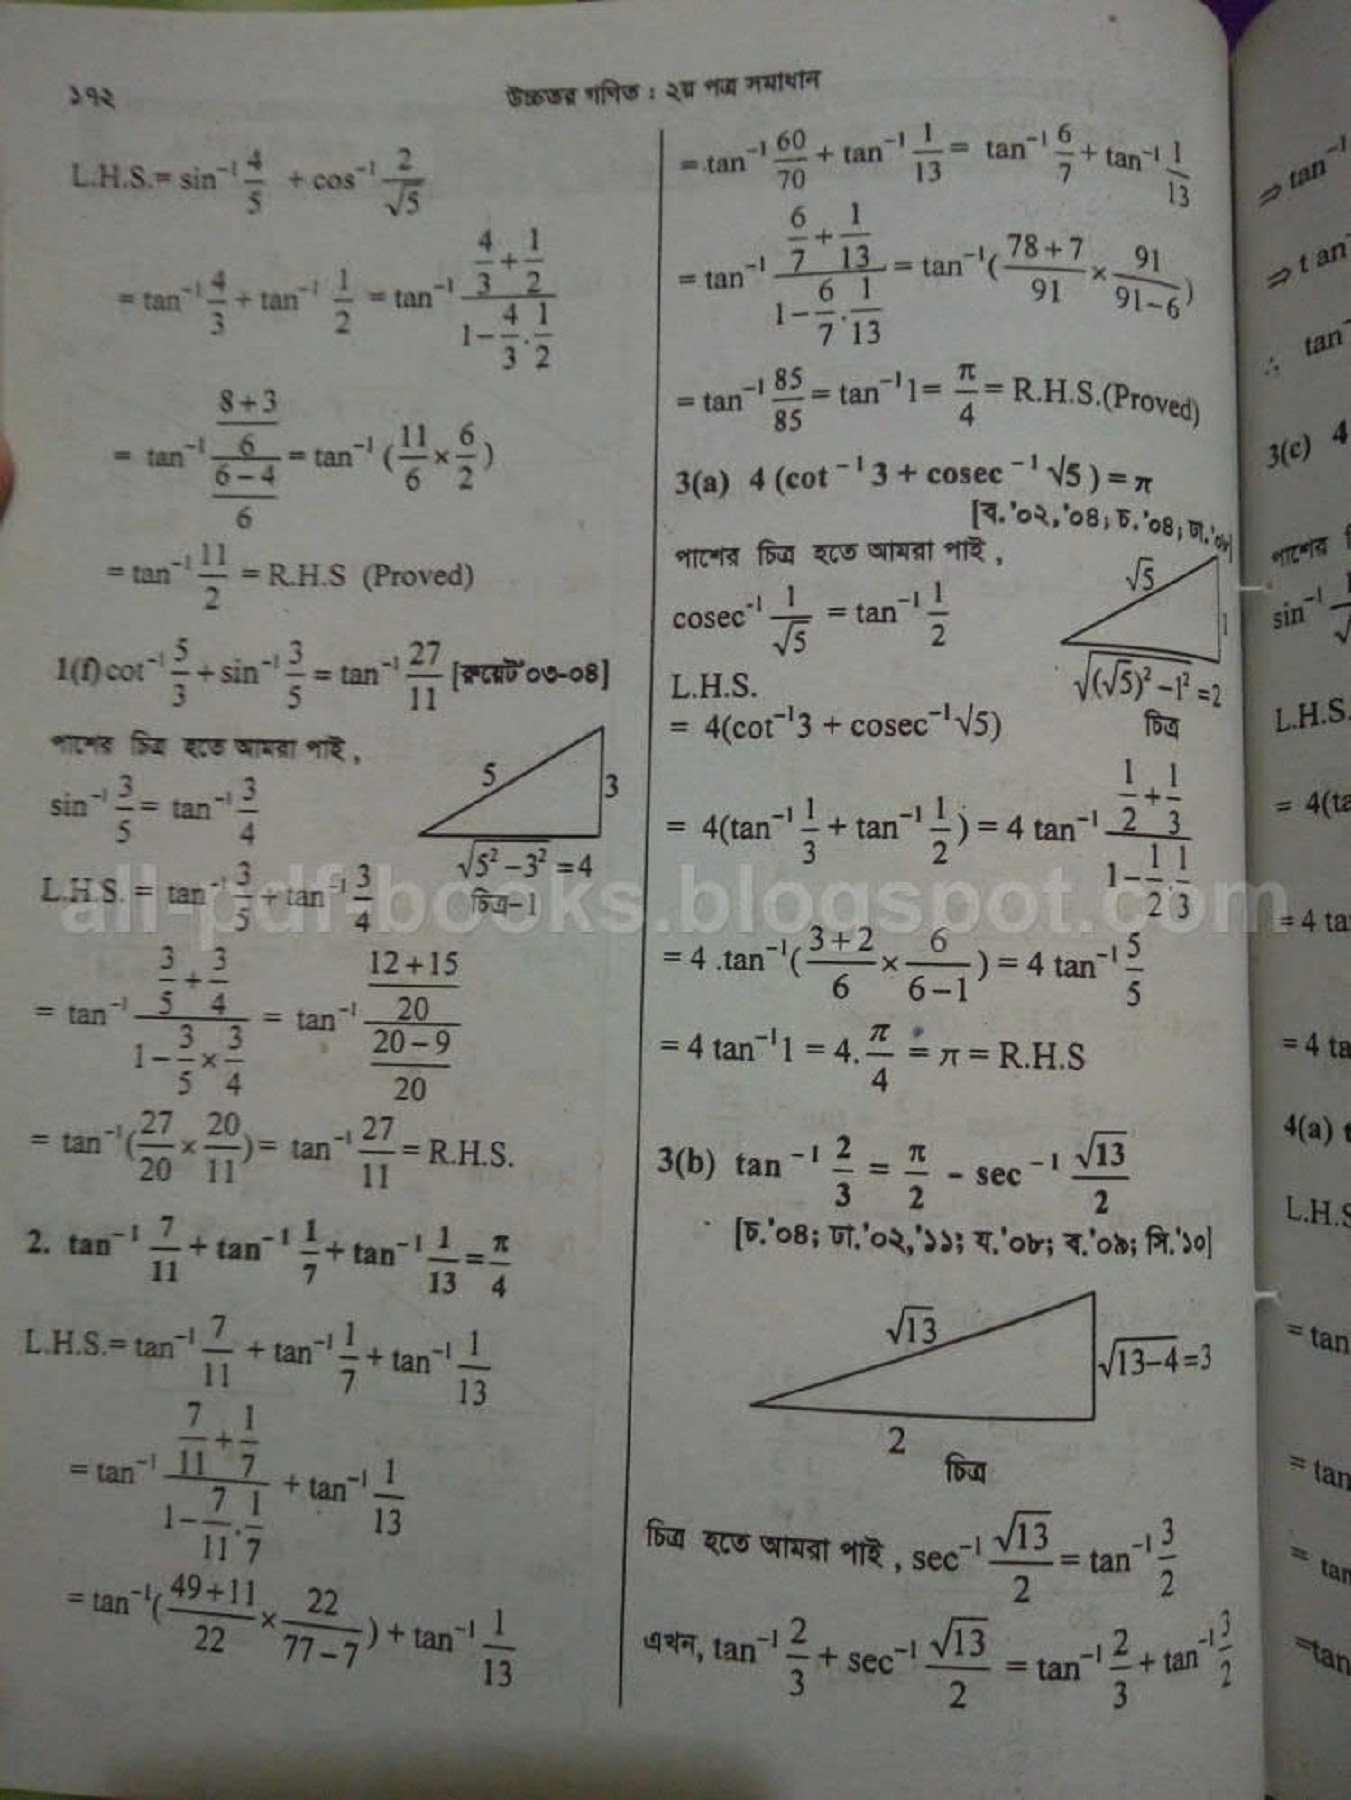 ১৭২
উচ্চতর গণিত : ২য় পত্র সমাধান
L.H.S.= sin⁻¹ 4/5 + cos⁻¹ 2/√5
= tan⁻¹ 4/3 + tan⁻¹ 1/2 = tan⁻¹ (4/3 + 1/2)/(1 − 4/3 . 1/2)
= tan⁻¹ ((8+3)/6)/((6−4)/6) = tan⁻¹ (11/6 × 6/2)
= tan⁻¹ 11/2 = R.H.S (Proved)
1(f) cot⁻¹ 5/3 + sin⁻¹ 3/5 = tan⁻¹ 27/11 [রুয়েট'০৩-০৪]
পাশের চিত্র হতে আমরা পাই ,
sin⁻¹ 3/5 = tan⁻¹ 3/4
5
3
√(5² − 3²) = 4
চিত্র-1
L.H.S. = tan⁻¹ 3/5 + tan⁻¹ 3/4
= tan⁻¹ (3/5 + 3/4)/(1 − 3/5 × 3/4) = tan⁻¹ ((12+15)/20)/((20−9)/20)
= tan⁻¹(27/20 × 20/11) = tan⁻¹ 27/11 = R.H.S.
2. tan⁻¹ 7/11 + tan⁻¹ 1/7 + tan⁻¹ 1/13 = π/4
L.H.S.= tan⁻¹ 7/11 + tan⁻¹ 1/7 + tan⁻¹ 1/13
= tan⁻¹ (7/11 + 1/7)/(1 − 7/11 . 1/7) + tan⁻¹ 1/13
= tan⁻¹((49+11)/22 × 22/(77−7)) + tan⁻¹ 1/13
= tan⁻¹ 60/70 + tan⁻¹ 1/13 = tan⁻¹ 6/7 + tan⁻¹ 1/13
= tan⁻¹ (6/7 + 1/13)/(1 − 6/7 . 1/13) = tan⁻¹((78+7)/91 × 91/(91−6))
= tan⁻¹ 85/85 = tan⁻¹1 = π/4 = R.H.S.(Proved)
3(a) 4 (cot⁻¹ 3 + cosec⁻¹ √5 ) = π
[ব.'০২,'০৪; চ.'০৪; ঢা.'০৮]
পাশের চিত্র হতে আমরা পাই ,
cosec⁻¹ 1/√5 = tan⁻¹ 1/2
√5
1
√((√5)² − 1²) = 2
চিত্র
L.H.S.
= 4(cot⁻¹3 + cosec⁻¹√5)
= 4(tan⁻¹ 1/3 + tan⁻¹ 1/2 ) = 4 tan⁻¹ (1/2 + 1/3)/(1 − 1/2 . 1/3)
= 4 .tan⁻¹((3+2)/6 × 6/(6−1)) = 4 tan⁻¹ 5/5
= 4 tan⁻¹1 = 4. π/4 = π = R.H.S
3(b) tan⁻¹ 2/3 = π/2 - sec⁻¹ √13/2
[চ.'০৪; ঢা.'০২,'১১; য.'০৮; ব.'০৯; সি.'১০]
√13
√(13−4) = 3
2
চিত্র
চিত্র হতে আমরা পাই , sec⁻¹ √13/2 = tan⁻¹ 3/2
এখন, tan⁻¹ 2/3 + sec⁻¹ √13/2 = tan⁻¹ 2/3 + tan⁻¹ 3/2
⇒ tan⁻¹
⇒ tan
∴ tan
3(c) 4
পাশের
sin⁻¹
L.H.S.
= 4(ta
= 4 ta
= 4 ta
4(a) t
L.H.S
= tan
= tan
= tan
=tan
all-pdf-books.blogspot.com